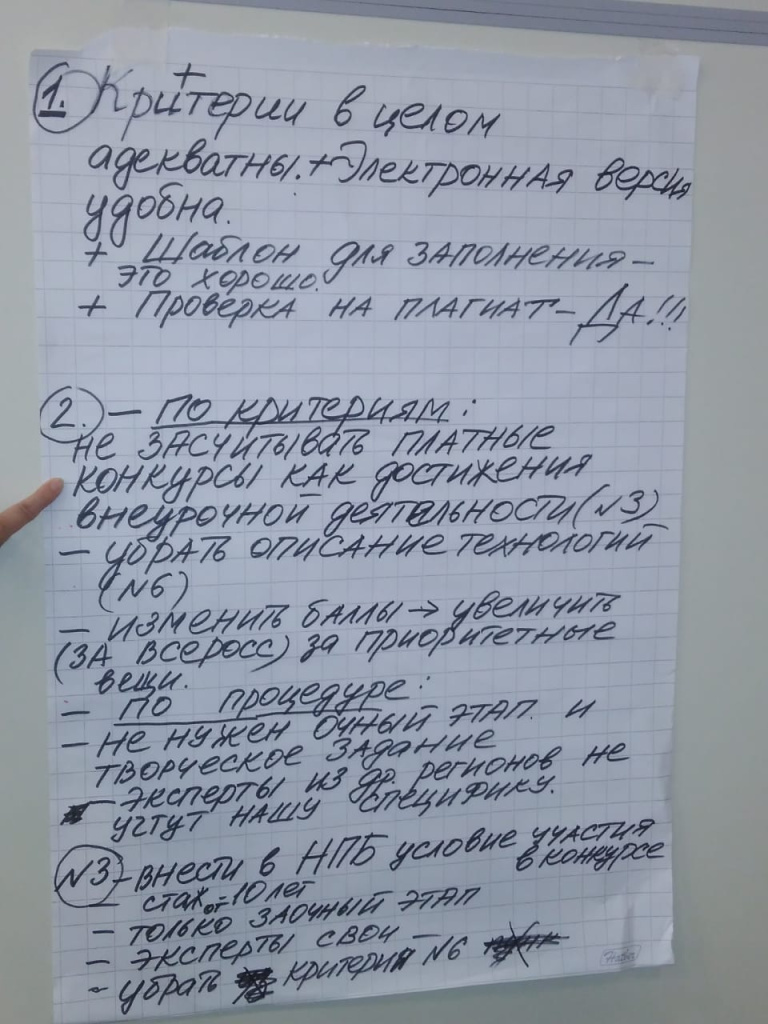 1. + Критерии в целом
адекватны. + Электронная версия
удобна.
+ Шаблон для заполнения –
это хорошо.
+ Проверка на плагиат – ДА!!!
2. – по критериям:
не засчитывать платные
конкурсы как достижения
внеурочной деятельности (№3)
– убрать описание технологий
(№6)
– изменить баллы → увеличить
(за всеросс) за приоритетные
вещи.
– по процедуре:
– не нужен очный этап и
творческое задание
– эксперты из др. регионов не
учтут нашу специфику.
№3 – внести в НПБ условие участия
в конкурсе
– стаж от – 10 лет
– только заочный этап
– эксперты свои –
– убрать критерий №6